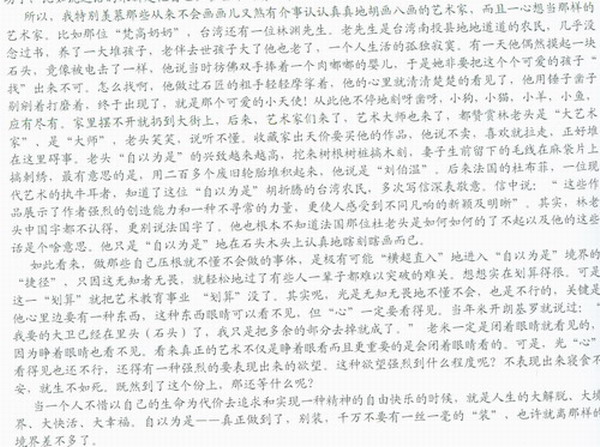 所以，我特别羡慕那些从来不会画画儿又煞有介事认认真真地胡画八画的艺术家，而且一心想当那样的
艺术家。比如那位“梵高奶奶”，台湾还有一位林渊先生。老先生是台湾南投县地地道道的农民，几乎没
念过书，养了一大堆孩子，老伴去世孩子大了他也老了，一个人生活的孤独寂寞。有一天他偶然摸起一块
石头，竟像被电击了一样，他说当时彷佛双手捧着一个肉嘟嘟的婴儿，于是她非要把这个个可爱的孩子“
找”出来不可。怎么找啊，他做过石匠的粗手轻轻摩挲着，他的心里就清清楚楚的看见了，他用锤子凿子
剐剐着打磨着，终于出现了，就是那个可爱的小天使！从此他不停地刻呀凿呀，小狗，小猫，小羊，小鱼，
应有尽有。家里摆不开就扔到大街上，后来，艺术家们来了，艺术大师也来了，都赞赏林老头是“大艺术
家”，是“大师”，老头笑笑，说听不懂。收藏家出天价要买他的作品，他说不卖，喜欢就拉走，正好堆
在这里碍事。老头“自以为是”的兴致越来越高，挖来树根树桩搞木刻，妻子生前留下的毛线在麻袋片上
搞刺绣，最有意思的是，用二百多个废旧轮胎堆积起来，他说是“刘伯温”。后来法国的杜布菲，一位现
代艺术的执牛耳者，知道了这位“自以为是”胡折腾的台湾农民，多次写信深表敬意。信中说：“ 这些作
品展示了作者强烈的创造能力和一种不寻常的力量，更使人感受到不同凡响的新颖及明晰”。其实，林老
头中国字都不认得，更别说法国字了。他也根本不知道法国那位杜老头是如何如何的了不起以及他的这些
话是个啥意思。他只是“自以为是”地在石头木头上认真地瞎刻瞎画而已。
如此看来，做那些自己压根就不懂不会做的事体，是极有可能“横超直入”地进入“自以为是”境界的
“捷径”，只因这无知者无畏，就轻松地过了有些人一辈子都难以突破的难关。想想实在划算得很。可是
这一“划算”就把艺术教育事业 “划算”没了。其实呢，光是无知无畏地不懂不会，也是不行的，关键是
他心里边要有一种东西，这种东西眼睛可以看不见，但“心”一定要看得见。当年米开朗基罗就说过：“
我要的大卫已经在里头（石头）了，我只是把多余的部分去掉就成了。” 老米一定是闭着眼睛就看见的，
因为睁着眼睛也看不见。看来真正的艺术不仅是睁着眼看而且更重要的是会闭着眼看的。可是，光“心”
看得见也还不行，还得有一种强烈的要表现出来的欲望。这种欲望强烈到什么程度呢？不表现出来寝食不
安，就生不如死。既然到了这个份上，那还等什么呢？
当一个人不惜以自己的生命为代价去追求和实现一种精神的自由快乐的时候，就是人生的大解脱、大境
界、大快活、大幸福。自以为是——真正做到了，别装，千万不要有一丝一毫的“装”，也许就离那样的
境界差不多了。